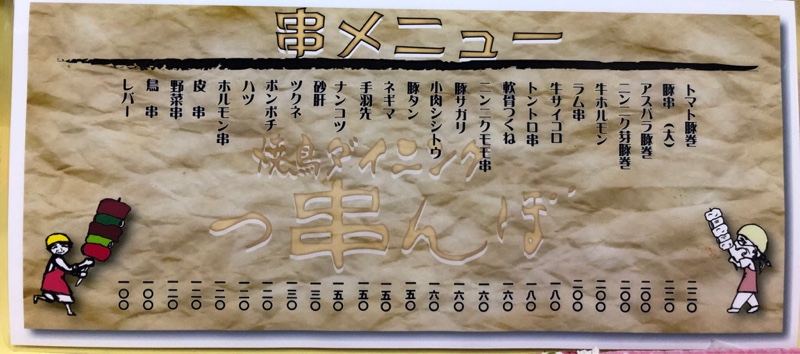 串メニュー
トマト豚巻 二二〇
豚串（大） 二二〇
アスパラ豚巻 二〇〇
ニンニク芽豚巻 二〇〇
牛ホルモン 二〇〇
ラム串 二〇〇
牛サイコロ 一八〇
トントロ串 一八〇
軟骨つくね 一六〇
ニンニクモモ串 一六〇
豚サガリ 一六〇
小肉シシトウ 一六〇
豚タン 一五〇
ネギマ 一五〇
手羽先 一五〇
ナンコツ 一五〇
砂肝 一三〇
ツクネ 一三〇
ボンボチ 一二〇
ハツ 一二〇
ホルモン串 一二〇
皮串 一二〇
野菜串 一二〇
鳥串 一〇〇
レバー 一〇〇
焼鳥ダイニング
つ串んぼ